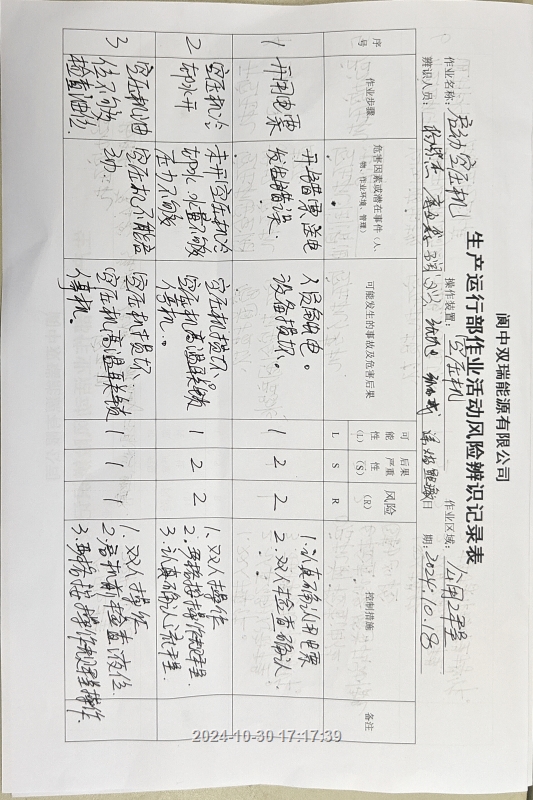 阆中双瑞能源有限公司
生产运行部作业活动风险辨识记录表
作业名称: 启动空压机 操作装置: 空压机 作业区域: 公用工程
辨识人员: 日 期: 2024.10.18
序号 作业步骤 危害因素或潜在事件(人、物、作业环境、管理) 可能发生的事故及危害后果 可能性(L) 后果严重性(S) 风险(R) 控制措施 备注
L S R
1 开用电票 开错票送电发生错误. 人员触电。设备损坏。 1 2 2 1.认真确认用电票
2.双人检查确认.
2 空压机冷却水开 未开空压机冷却水,水量不够压力不够 空压机损坏 空压机高温联锁停机。 1 2 2 1.双人操作
2.严格按操作规程
3.认真确认流程.
3 空压机油位不够检查油位. 空压机不能启动. 空压机损坏 空压机高温联锁停机. 1 1 1 1.双人操作
2.启机前检查液位
3.严格按操作规程操作.
2024-10-30 17:17:39